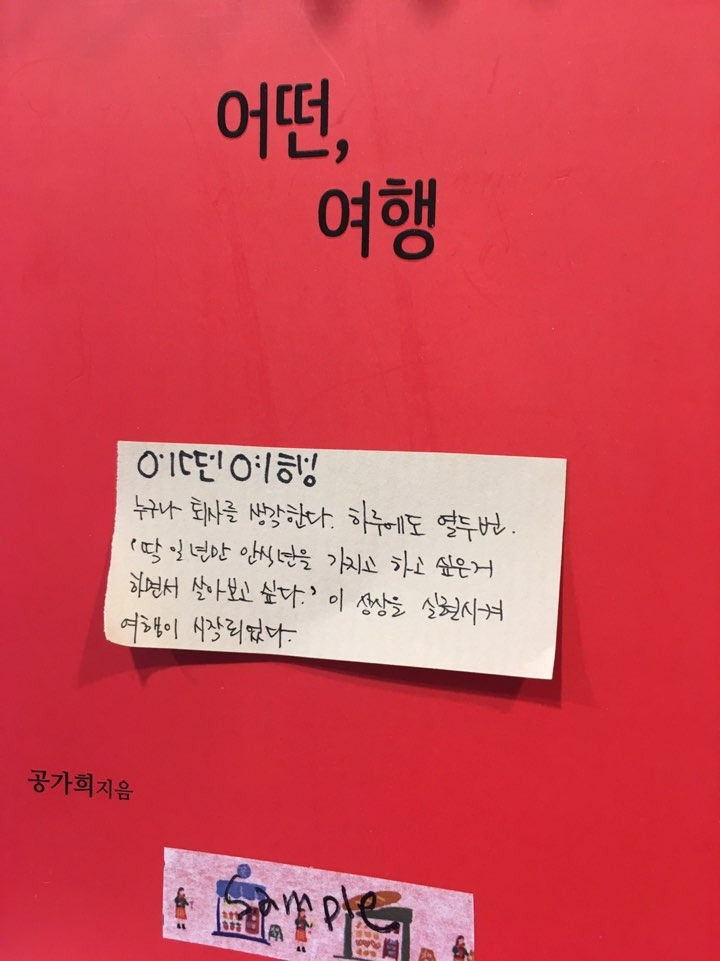 어떤,
여행
어떤여행
누구나 퇴사를 생각한다. 하루에도 열두번.
'딱 일년만 안식년을 가지고 하고 싶은거
하면서 살아보고 싶다.' 이 생상을 실현시켜
여행이 시작되었다.
공가희지음
Sample